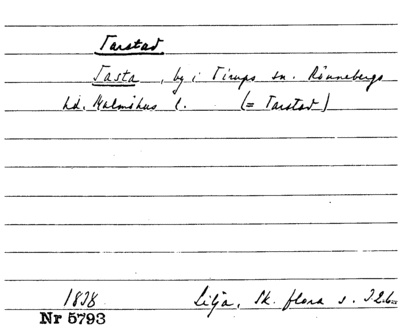 Tarstad
Tasta, by i Tirups sn. Rönnebergs
hd. Malmöhus l. (= Tarstad)
1838 Lilja, Sk. flora s.
Nr 5793